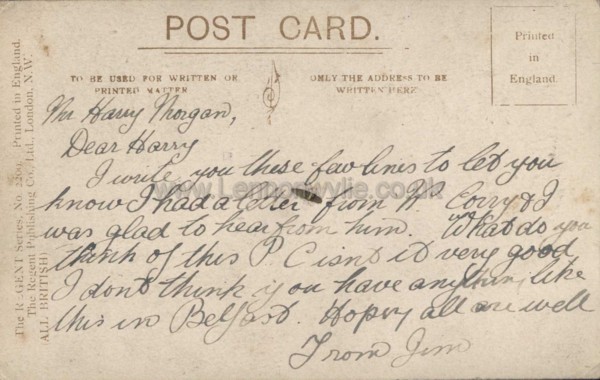 POST CARD.
Printed
in
England.
TO BE USED FOR WRITTEN OR
PRINTED MATTER
ONLY THE ADDRESS TO BE
WRITTEN HERE
The REGENT Series, No. 2200. Printed in England.
The Regent Publishing Co., Ltd., London, N.W.
ALL BRITISH)
Mr Harry Morgan,
Dear Harry
I write you these few lines to let you
know I had a letter from W. Corry & I
was glad to hear from him. What do you
think of this P C isnt it very good
I dont think you have anything like
this in Belfast. Hopeing all are well
From Jim
www.Lennonwylie.co.uk